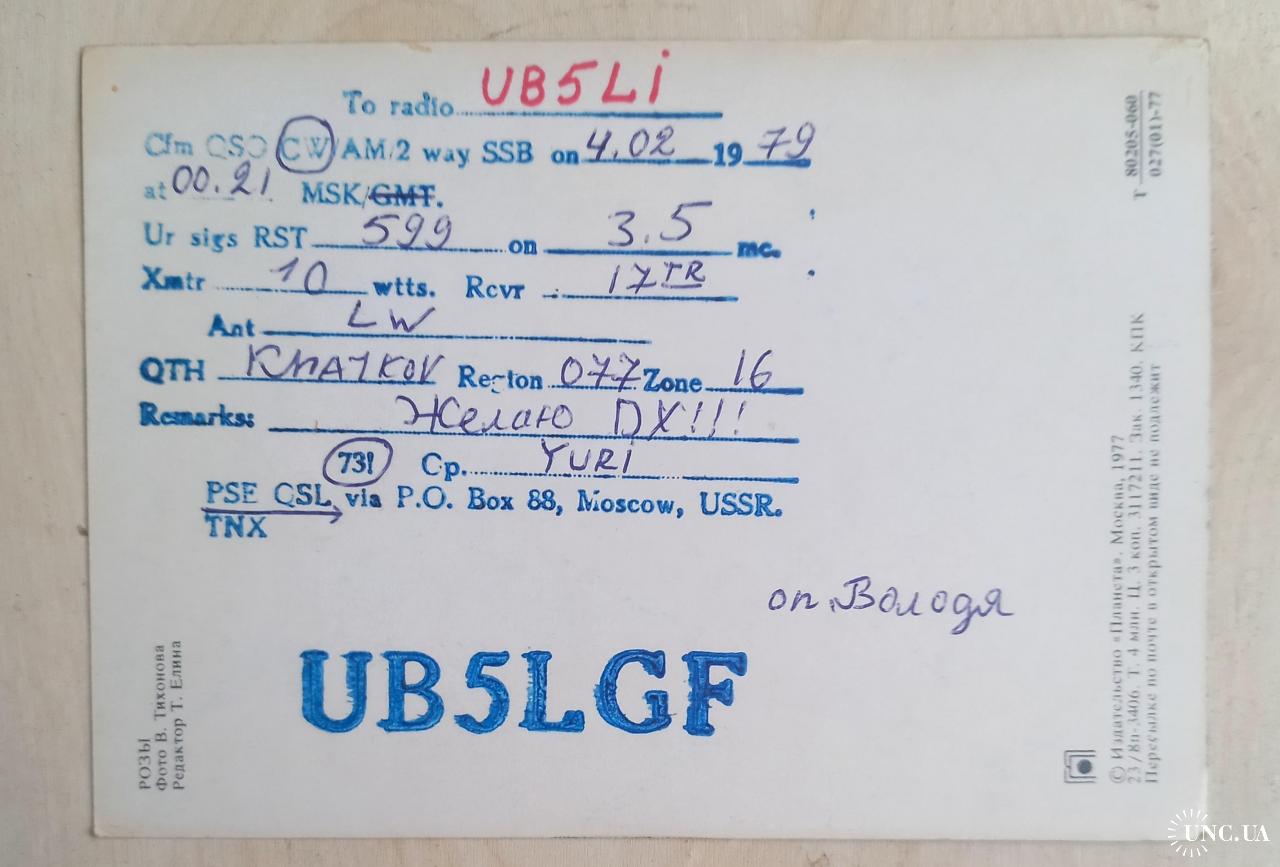 To radio UB5Li
Cfm QSO CW/AM/2 way SSB on 4.02 1979
at 00.21 MSK/GMT.
Ur sigs RST 599 on 3.5 mc.
Xmtr 10 wtts. Rcvr 17TR
Ant LW
QTH Region 077 Zone 16
Remarks: Желаю DX!!!
73! Cp. YURi
PSE QSL via P.O. Box 88, Moscow, USSR.
TNX
оп. Володя
UB5LGF
РОЗЫ
Фото В. Тихонова
Редактор Т. Елина
© Издательство «Планета». Москва, 1977
23/8п-3406. Т. 4 млн. Ц. 3 коп. 3117211. Зак. 1340. КПК
Пересылке по почте в открытом виде не подлежит
Т 80205-060
027(01)-77
UNC.UA